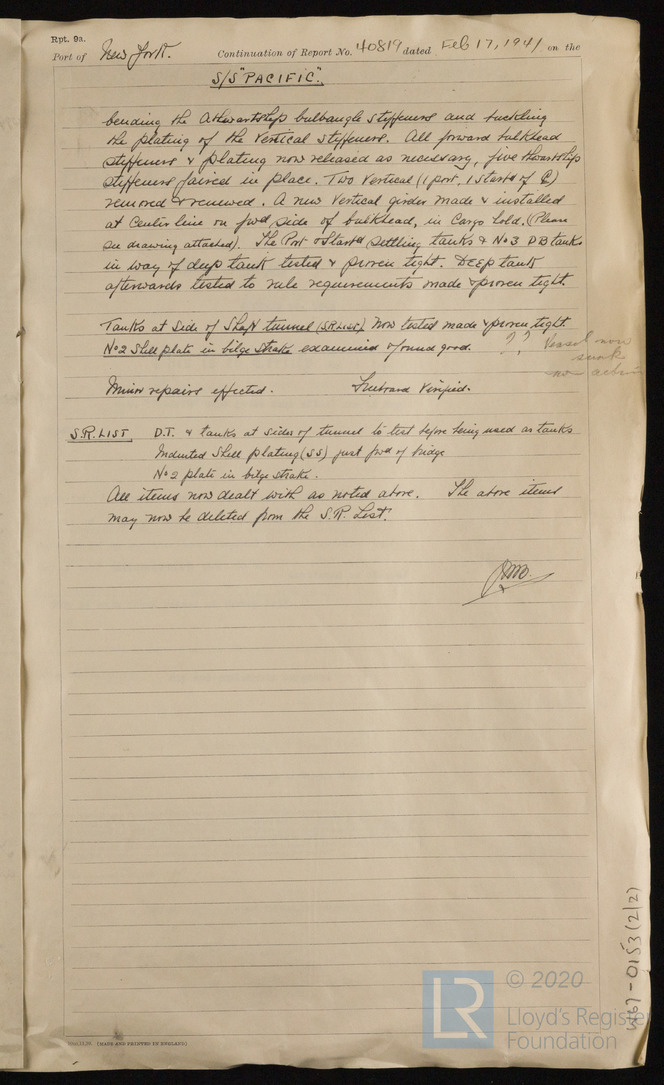 Rpt. 9a.
Port of New York. Continuation of Report No. 40819 dated Feb 17, 1941 on the
S/S "PACIFIC".
bending the athwartships bulbangle styffeners and buckling
the plating of the vertical styffeners. All forward bulkhead
styffeners & plating now released as necessary, five thwartship
styffeners faired in place. Two vertical (1 port, 1 starbd of ℄)
removed & renewed. A new vertical girder made & installed
at center line on fwd side of bulkhead, in Cargo hold. (Please
see drawing attached). The Port & Starbd settling tanks & No 3 DB tanks
in way of deep tank tested & proven tight. Deep tank
afterwards tested to rule requirements made & proven tight.
Tanks at side of Shaft tunnel (S.R. LIST) now tested made & proven tight.
No 2 Shell plate in bilge strake examined & found good. ?? Vessel now
sunk
no action
Minor repairs effected. Freeboard Verified.
S.R. LIST. D.T. & tanks at sides of tunnel to test before being used as tanks
Indented Shell plating (SS) just fwd of bridge
No 2 plate in bilge strake.
All items now dealt with as noted above. The above items
may now be deleted from the S.R. List.
(MADE AND PRINTED IN ENGLAND)
W67-0153 (2/2)
LR
© 2020
Lloyd's Register
Foundation